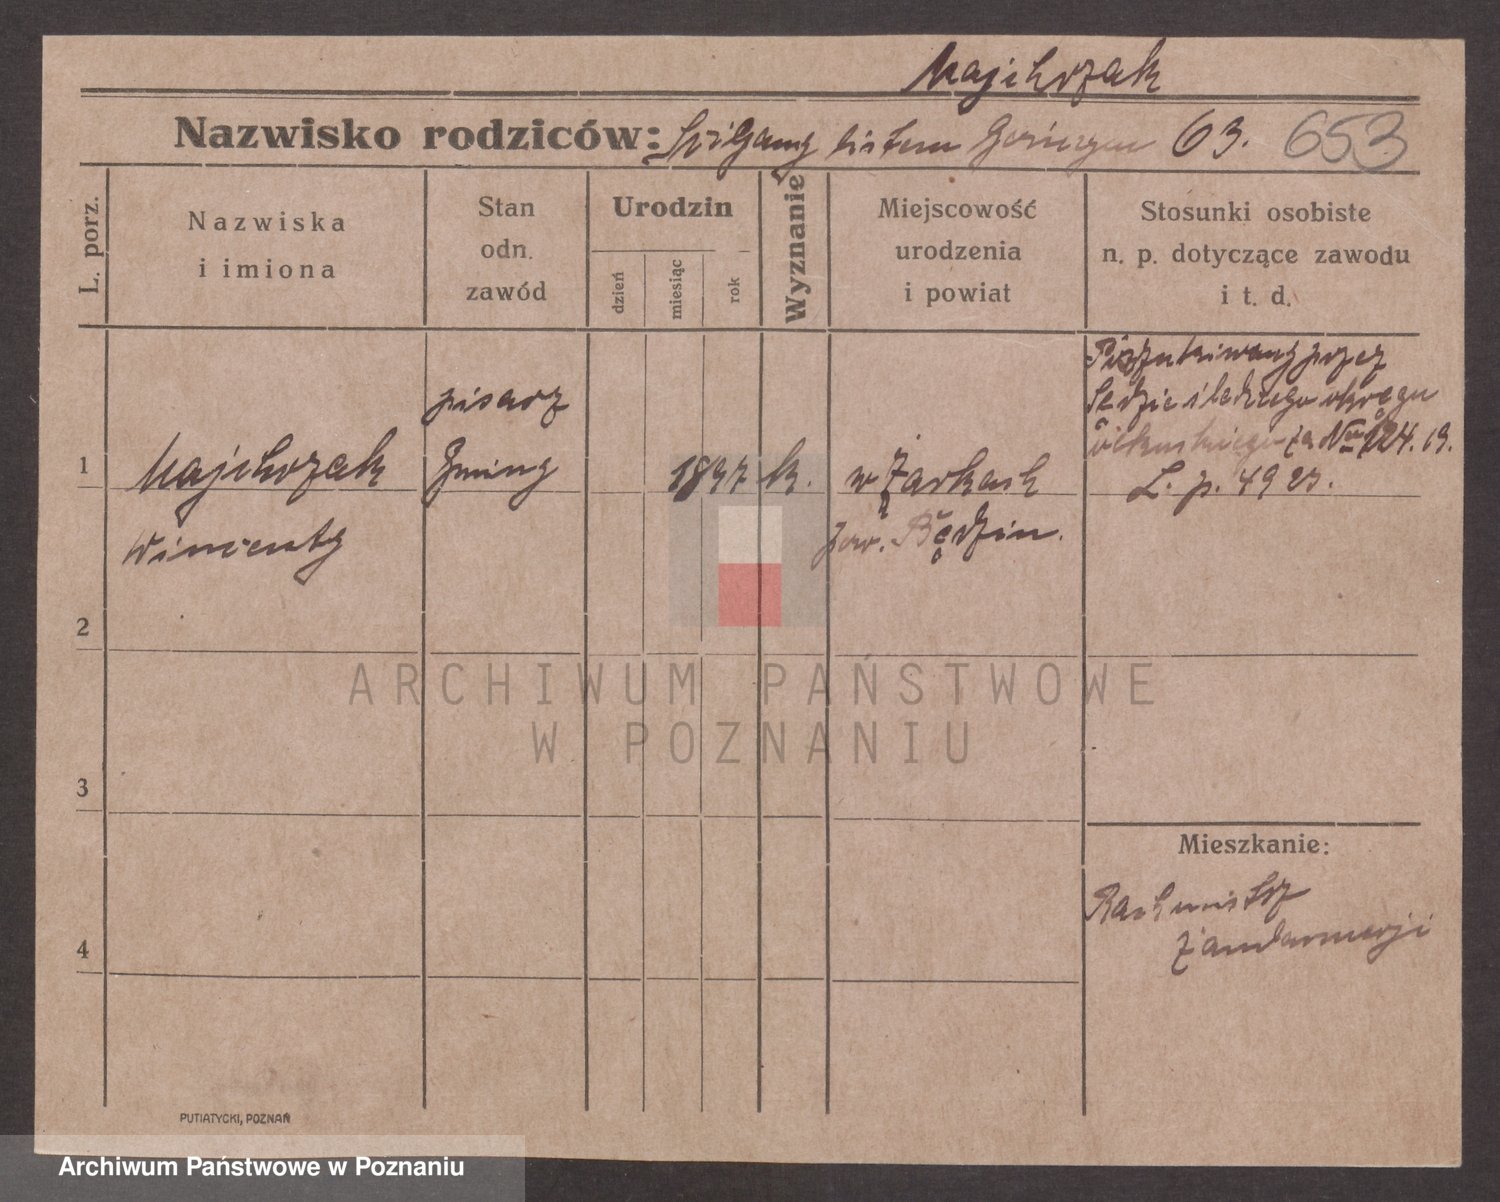 Majchrzak
Nazwisko rodziców: Ścigany listem Gończym 63. 653
L. porz.
Nazwiska
i imiona
Stan
odn.
zawód
Urodzin
dzień
miesiąc
rok
Wyznanie
Miejscowość
urodzenia
i powiat
Stosunki osobiste
n. p. dotyczące zawodu
i t. d.
1
Majchrzak
Wincenty
pisarz
Gminy
1897
k.
w Żarkach
pow. Będzin.
Poszukiwany przez
Sędzie śledczego okręgu
olkuskiego za No 124.19.
L. p. 4923.
2
3
4
Mieszkanie:
Rachmistrz
żandarmerji
PUTIATYCKI, POZNAŃ
ARCHIWUM PAŃSTWOWE
W POZNANIU
Archiwum Państwowe w Poznaniu